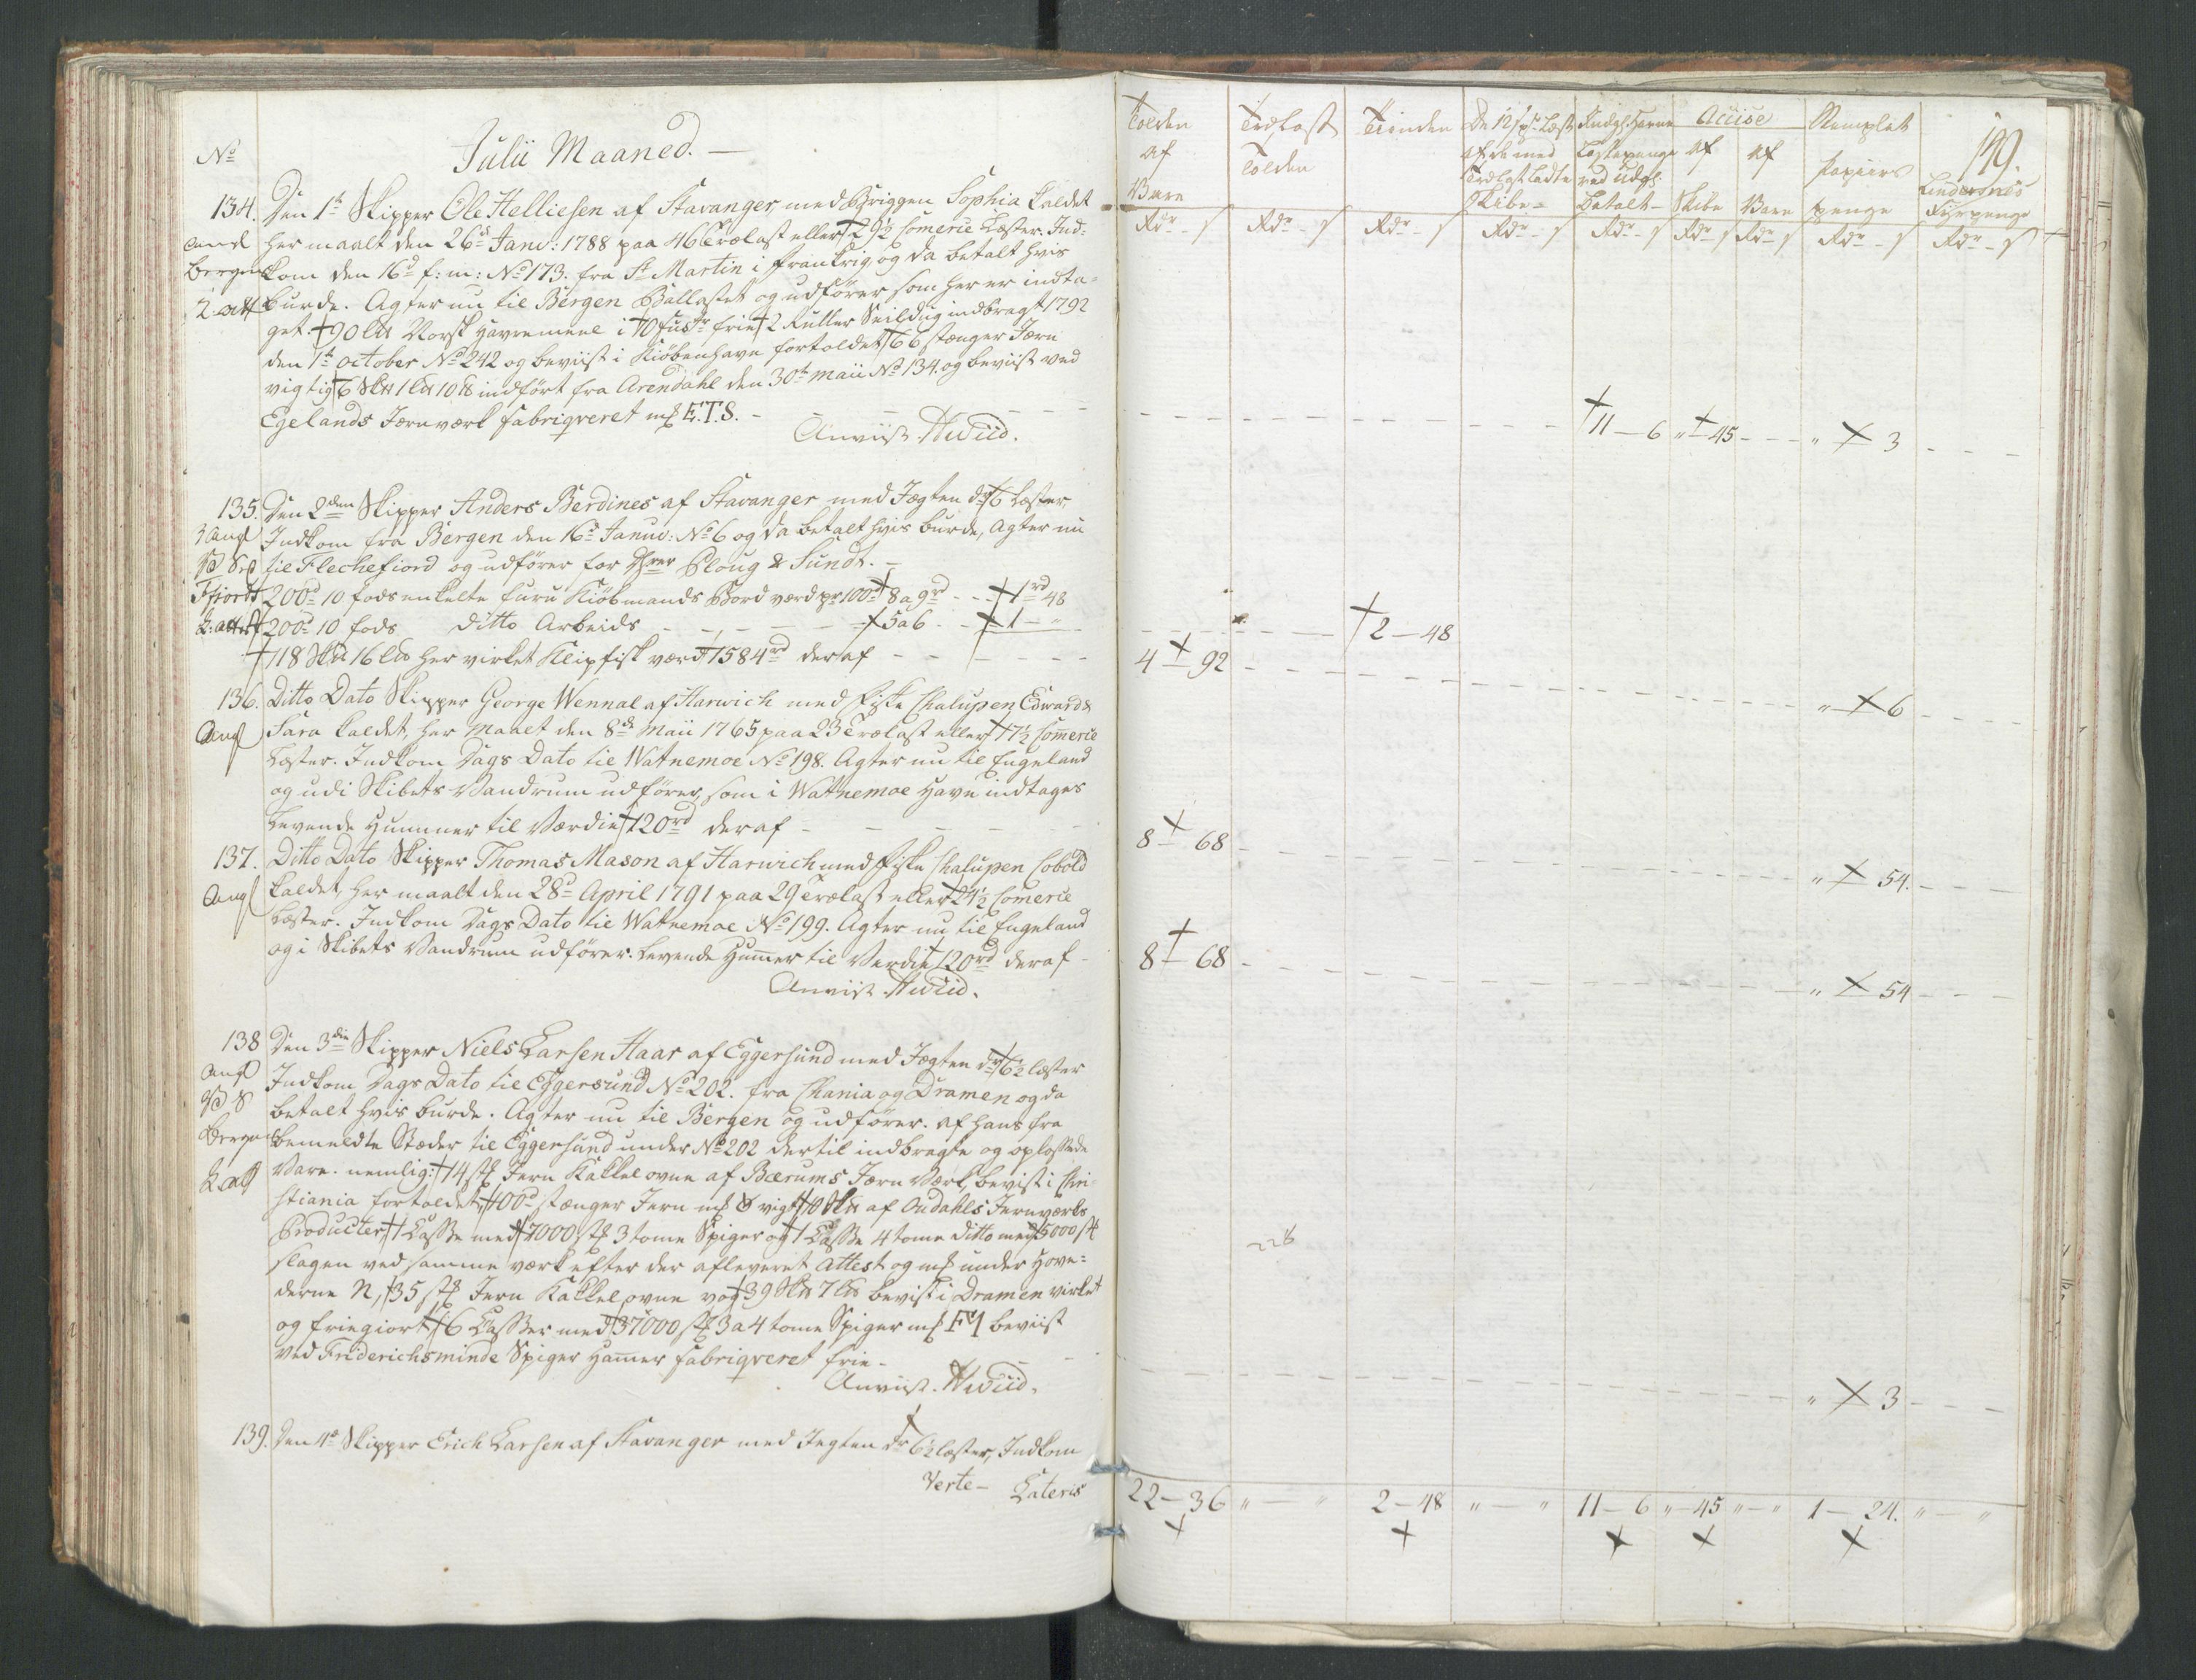 No
Julii Maaned. —
134. Den 1te Skipper Ole Helliesen af Stavanger, med Briggen Sophia kaldet
her maalt den 26de Janv: 1788 paa 46 Trælast eller 29½ Comerce Læster. Ind-
Bergen kom den 16de f: m: No 173. fra St Martin i Frankrig, og da betalt hvis
2 att burde. Agter nu til Bergen Ballastet og udfører som her er indta-
get. 90 Norsk Havremeel i 10 frie 2 Ruller Seildug indbragt 1792
den 1te October No 242 og beviist i Kiøbenhavn fortoldet, 66 stænger Jern
vigtig 6 1 10 indført fra Arendahl den 30te Maii No 134. og beviist ved
Egelands Jernværk fabriqveret E.T.S. -
Anviist. Hvid.
135. Den 2den Skipper Anders Berdines af Stavanger med Jagten dr 6 Læster,
Indkom fra Bergen den 16de Janv: No 6 og da betalt hvis burde, Agter nu
til Flechefiord og udfører for Ploug & Sundt. -
200d 10 fods enkelte furu Kiøbmands Bord værd pr 100d 8 a 9rd - - 1rd 48
200d 10 fods ditto Arbeids - - - - 5 a 6 - - 1 - "
118 16 her virket Klipfisk værd 1584rd deraf - - - -
136. Ditto Dato Skipper George Wennal af Harwich med Fiske Chalupen Edward &
Sara kaldet, her maalt den 8de Maii 1765 paa 23 Trælast eller 17½ Comerce
Læster. Indkom Dags Dato til Watnemoe No 198. Agter nu til Engeland
og udi Skibets Vandrum udfører, som i Watnemoe Havn indtages
Levende Hummer til Værdie 120rd deraf - - - -
137. Ditto Dato Skipper Thomas Mason af Harwich med Fiske Chalupen Cobold
kaldet, her maalt den 28de April 1791 paa 29 Trælast eller 24½ Comerce
Læster. Indkom Dags Dato til Watnemoe No 199. Agter nu til Engeland
og i Skibets Vandrum udfører. Levende Hummer til Verdie 120rd deraf -
Anviist. Hvid.
138 Den 3die Skipper Niels Larsen Haar af Eggersund med Jagten dr 6½ Læster
Indkom Dags Dato til Eggersund No 202. fra Chania og Dramen og da
betalt hvis burde. Agter nu til Bergen og udfører. af hans fra
Bergen bemeldte Stæder til Eggersund under No 202 dertil indbragte og oplossede
2 att Vare. nemlig: 14 st Jern Kakkelovne af Bærums Jern Værk, beviist i Chri-
stiania fortoldet, 100d stænger Jern vigt 10 af Oudahls Jernværks
Producter, 1 Casse med 7000 st 3 tome Spiger og 1 Casse 4 tome ditto med 5000 st
slagen ved samme værk efter der afleveret Attest og under Hove-
derne N, 35 st Jern Kakkelovne vog 39 7 bevist i Dramen virket
og friegiort, 6 Casser med 37000 st 3 a 4 tome Spiger FM beviist
ved Friderichsminde Spiger Hamer fabriqveret frie -
Anviist. Hvid.
139. Den 4de Skipper Erich Larsen af Stavanger med Jegten dr 6½ læster, Indkom
Verte — Lateris
149.
Tolden af Vare
Trælast Tolden
Tienden
De 12 s pr Læst af de med Trælast ladte Skibe
Indgl: Havne Læstepenge ved Udgl: betalt
Accise
af Skibe
af Vare
Stemplet Papiirs penge
Lindersnes Fyrpenge
Rdr - s Rdr - s Rdr - s Rdr - s Rdr - s Rdr s Rdr s Rdr - s Rdr - s
11 - 6 " 45 - - - " 3
2 - 48
4 92
" 6
8 68
" 54.
8 68
" 54
228
" 3
22 - 36 " — " 2 - 48 " — " 11 - 6 " - 45 " - " 1 - 24. " — "